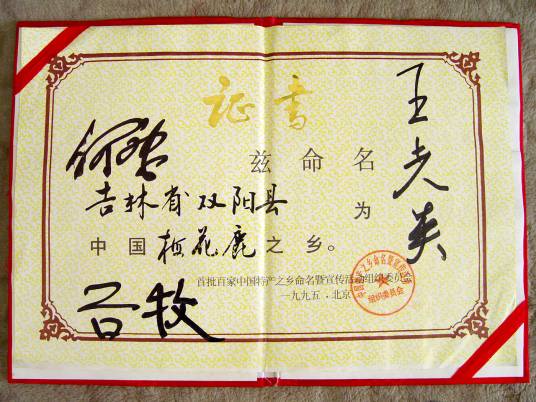 证书
兹命名
吉林省双阳县为
中国梅花鹿之乡。
首批百家中国特产之乡命名暨宣传活动组织委员会
一九九五·北京
王光英
谷牧
何康